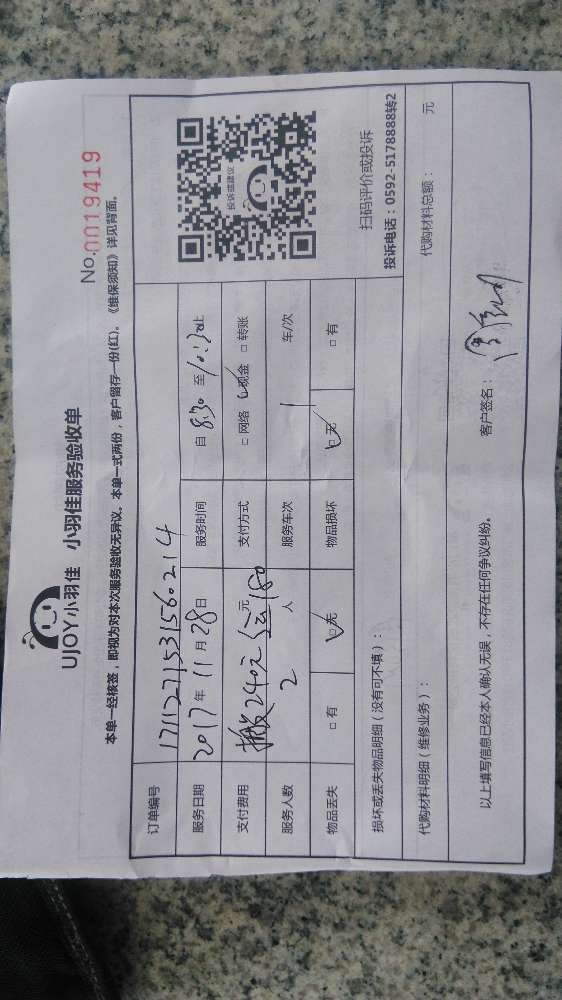 UJOY小羽佳 小羽佳服务验收单
No.0019419
本单一经核签，即视为对本次服务验收无异议。本单一式两份，客户留存一份(红)。《维保须知》详见背面。
订单编号 1711271531560214
服务日期 2017年 11月 28日 服务时间 自 8:30 至 10:30止
支付费用 搬240元 180元 支付方式 □网络 ☑现金 □转账
服务人数 2 人 服务车次 1 车/次
物品丢失 □有 ☑无 物品损坏 ☑无 □有
投诉或建议
扫码评价或投诉
投诉电话：0592-5178888转2
损坏或丢失物品明细（没有可不填）：
代购材料明细（维修业务）： 代购材料总额： 元
以上填写信息已经本人确认无误，不存在任何争议纠纷。 客户签名：